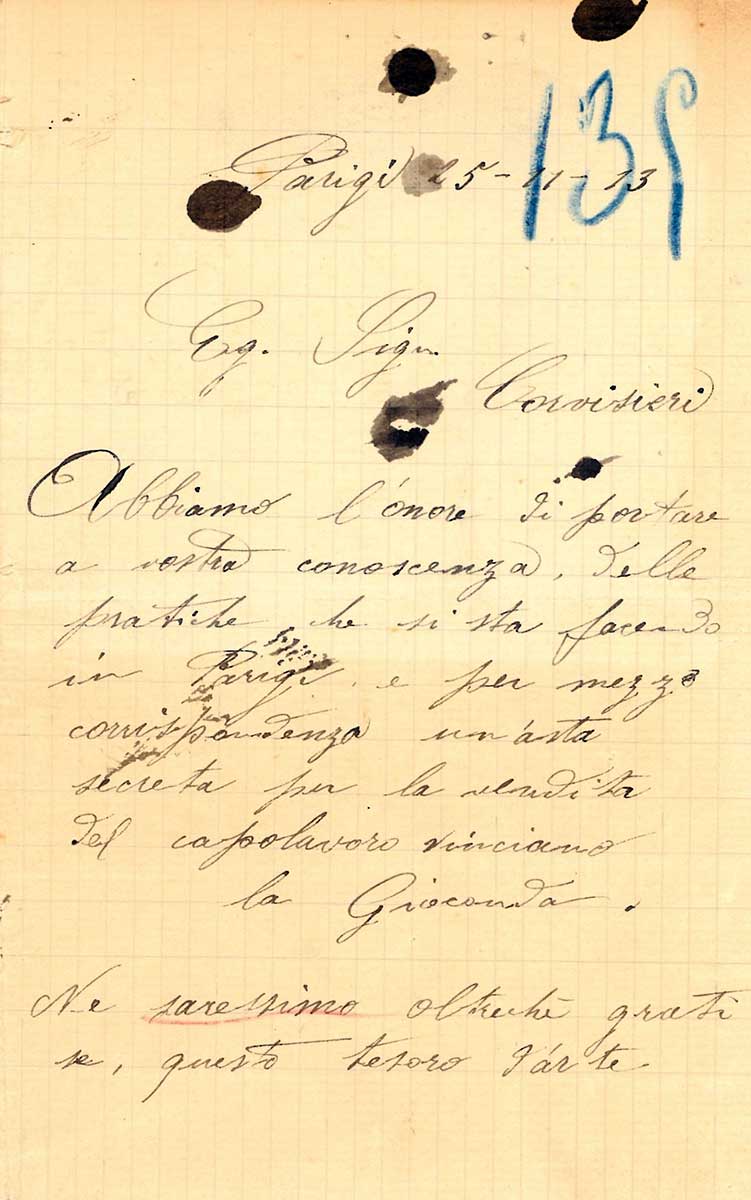 135
Parigi 25-11-13
Eg. Sign.
Corvisieri
Abbiamo l'onore di portare
a vostra conoscenza, delle
pratiche che si sta facendo
in Parigi e per mezzo
corrispondenza un'asta
secreta per la vendita
del capolavoro vinciano
la Gioconda.
Ne saressimo oltrechè grati
se, questo tesoro d'arte